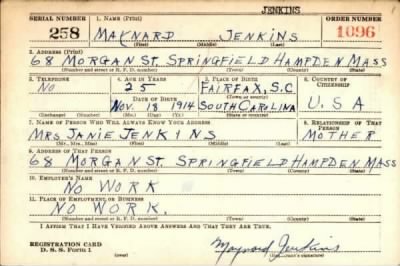 JENKINS
SERIAL NUMBER 1. NAME (Print) ORDER NUMBER
258 MAYNARD JENKINS 1096
(First) (Middle) (Last)
2. ADDRESS (Print)
68 MORGAN ST. SPRINGFIELD HAMPDEN MASS
(Number and street or R. F. D. number) (Town) (County) (State)
3. TELEPHONE 4. AGE IN YEARS 5. PLACE OF BIRTH 6. COUNTRY OF CITIZENSHIP
NO 25 FAIRFAX, S.C.
DATE OF BIRTH (Town or county)
NOV. 18 1914 SOUTH CAROLINA U S A
(Exchange) (Number) (Mo.) (Day) (Yr.) (State or country)
7. NAME OF PERSON WHO WILL ALWAYS KNOW YOUR ADDRESS 8. RELATIONSHIP OF THAT PERSON
MRS. JANIE JENKINS MOTHER
(Mr., Mrs., Miss) (First) (Middle) (Last)
9. ADDRESS OF THAT PERSON
68 MORGAN ST. SPRINGFIELD HAMPDEN MASS
(Number and street or R. F. D. number) (Town) (County) (State)
10. EMPLOYER'S NAME
NO WORK
11. PLACE OF EMPLOYMENT OR BUSINESS
NO WORK.
(Number and street or R. F. D. number) (Town) (County) (State)
I AFFIRM THAT I HAVE VERIFIED ABOVE ANSWERS AND THAT THEY ARE TRUE.
REGISTRATION CARD
D. S. S. Form 1
Maynard Jenkins